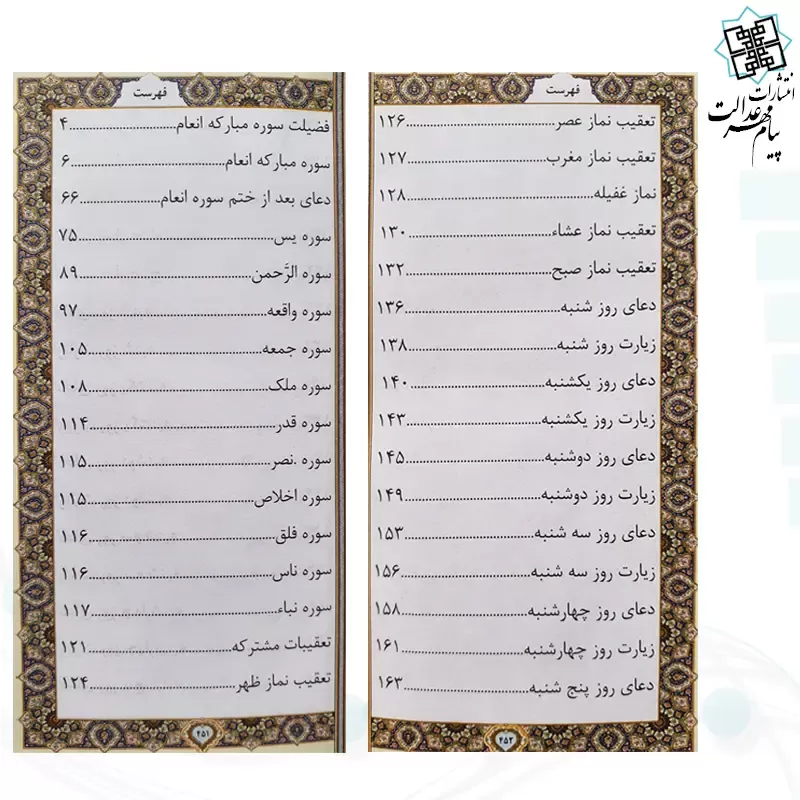 انتشارات
پیام مهر عدالت
فهرست
فضیلت سوره مبارکه انعام...........................۴
سوره مبارکه انعام...........................۶
دعای بعد از ختم سوره انعام...........................۶۶
سوره یس...........................۷۵
سوره الرَّحمن...........................۸۹
سوره واقعه...........................۹۷
سوره جمعه...........................۱۰۵
سوره ملک...........................۱۰۸
سوره قدر...........................۱۱۴
سوره .نصر...........................۱۱۵
سوره اخلاص...........................۱۱۵
سوره فلق...........................۱۱۶
سوره ناس...........................۱۱۶
سوره نباء...........................۱۱۷
تعقیبات مشترکه...........................۱۲۱
تعقیب نماز ظهر...........................۱۲۴
۴۵۱
فهرست
تعقیب نماز عصر...........................۱۲۶
تعقیب نماز مغرب...........................۱۲۷
نماز غفیله...........................۱۲۸
تعقیب نماز عشاء...........................۱۳۰
تعقیب نماز صبح...........................۱۳۲
دعای روز شنبه...........................۱۳۶
زیارت روز شنبه...........................۱۳۸
دعای روز یکشنبه...........................۱۴۰
زیارت روز یکشنبه...........................۱۴۳
دعای روز دوشنبه...........................۱۴۵
زیارت روز دوشنبه...........................۱۴۹
دعای روز سه شنبه...........................۱۵۳
زیارت روز سه شنبه...........................۱۵۶
دعای روز چهارشنبه...........................۱۵۸
زیارت روز چهارشنبه...........................۱۶۱
دعای روز پنج شنبه...........................۱۶۳
۴۵۲